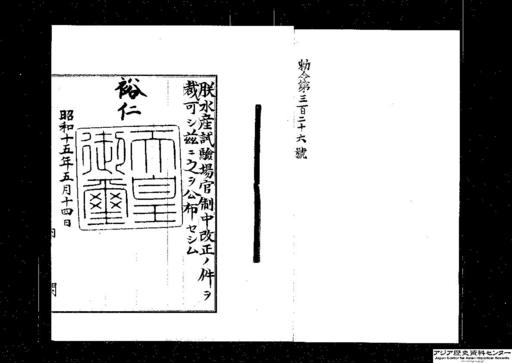 勅令第三百二十六號
朕水産試驗場官制中改正ノ件ヲ
裁可シ茲ニ之ヲ公布セシム
裕仁
天皇御璽
昭和十五年五月十四日
内閣
アジア歴史資料センター
Japan Center for Asian Historical Records